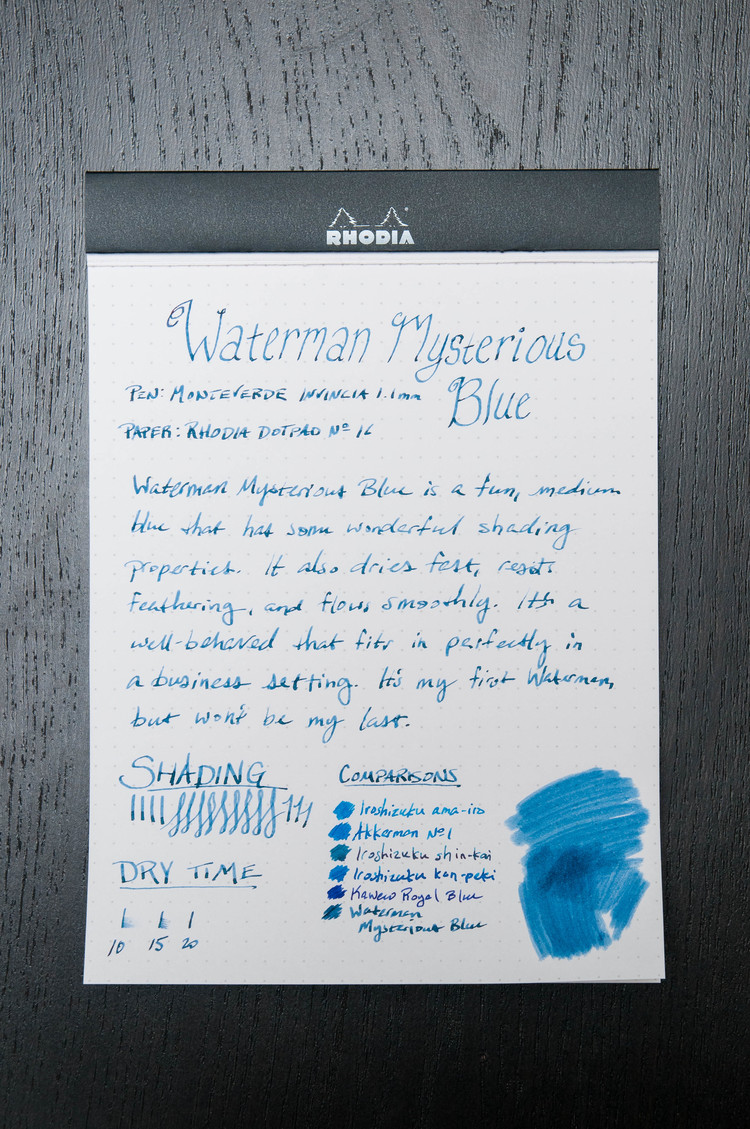 RHODIA
Waterman Mysterious
Blue
PEN: MONTEVERDE INVINCIA 1.1mm
PAPER: RHODIA DOTPAD Nº 16
Waterman Mysterious Blue is a fun, medium
blue that has some wonderful shading
properties. It also dries fast, resists
feathering, and flows smoothly. It's a
well-behaved that fits in perfectly in
a business setting. It's my first Waterman,
but won't be my last.
SHADING
DRY TIME
10 15 20
COMPARISONS
Iroshizuku ama-iro
Akkerman Nº1
Iroshizuku shin-kai
Iroshizuku kon-peki
Kaweco Royal Blue
Waterman
Mysterious Blue